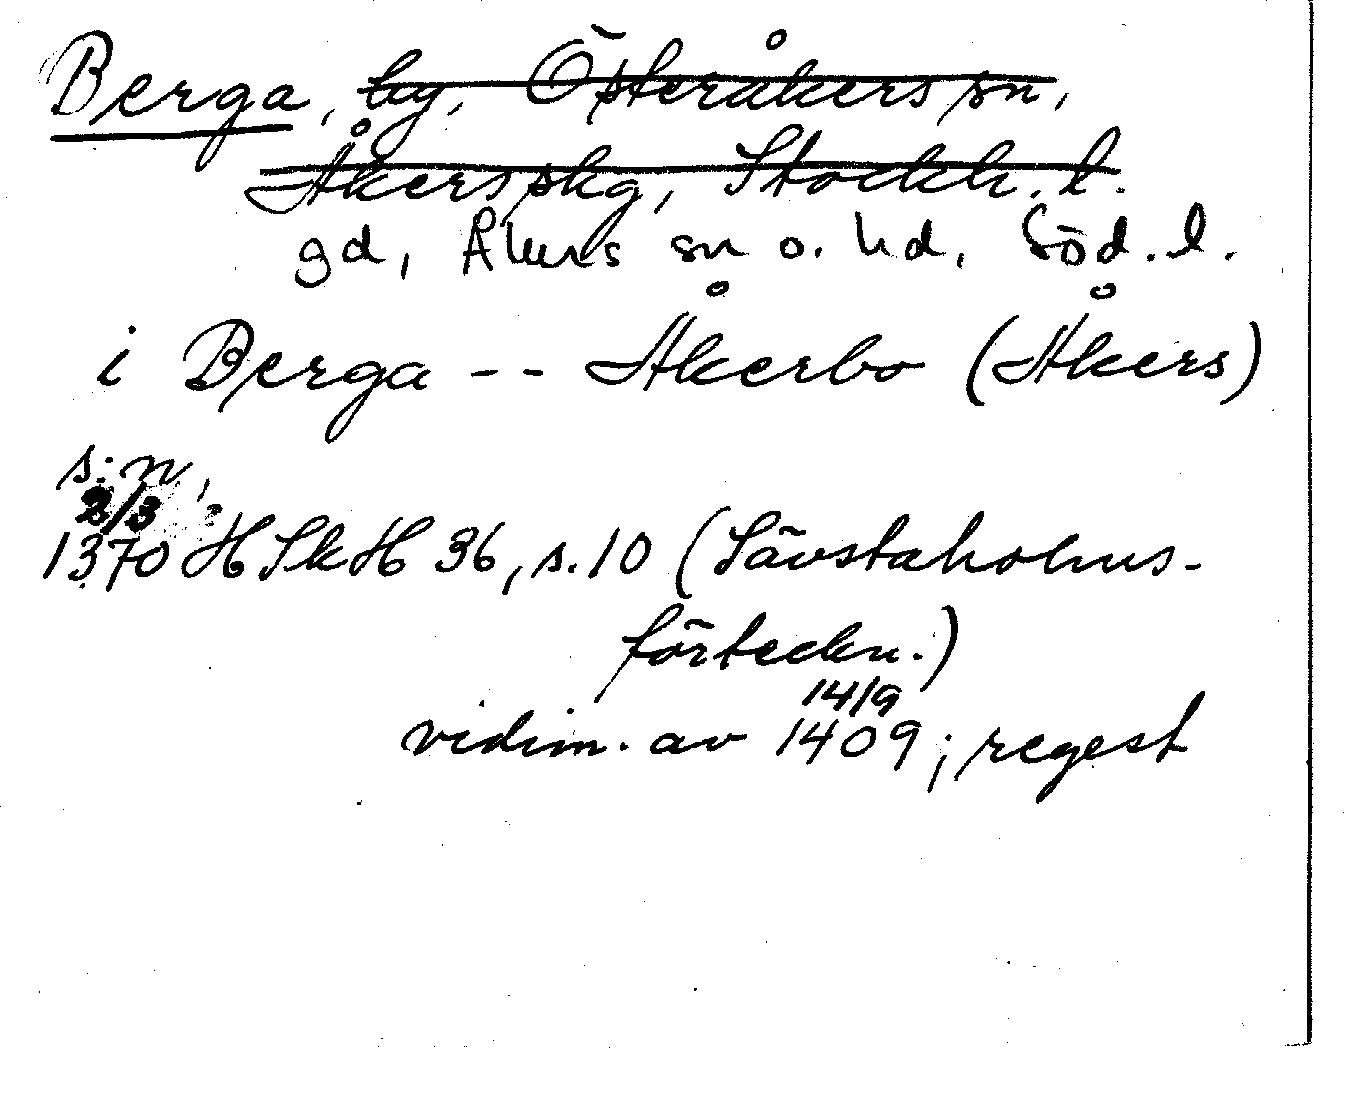 Berga, by, Österåkers sn,
Åkers skg, Stockh. l.
gd, Åkers sn o. hd, Söd. l.
i Berga -- Åkerbo (Åkers)
s:n,
2/3
1370 HSkH 36, s. 10 (Sävstaholms-
förteckn.)
14/9
vidim. av 1409; regest